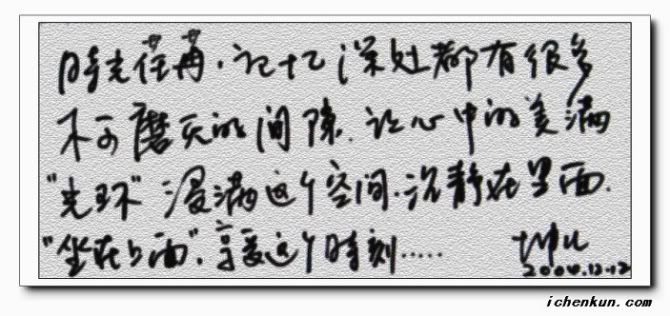 时光荏苒.记忆深处都有很多
不可磨灭的间隙.让心中的美满
"光环"浸满这个空间.沉静在里面.
"坐在上面".享受这个时刻.....
坤儿
2004.12.12
ichenkun.com